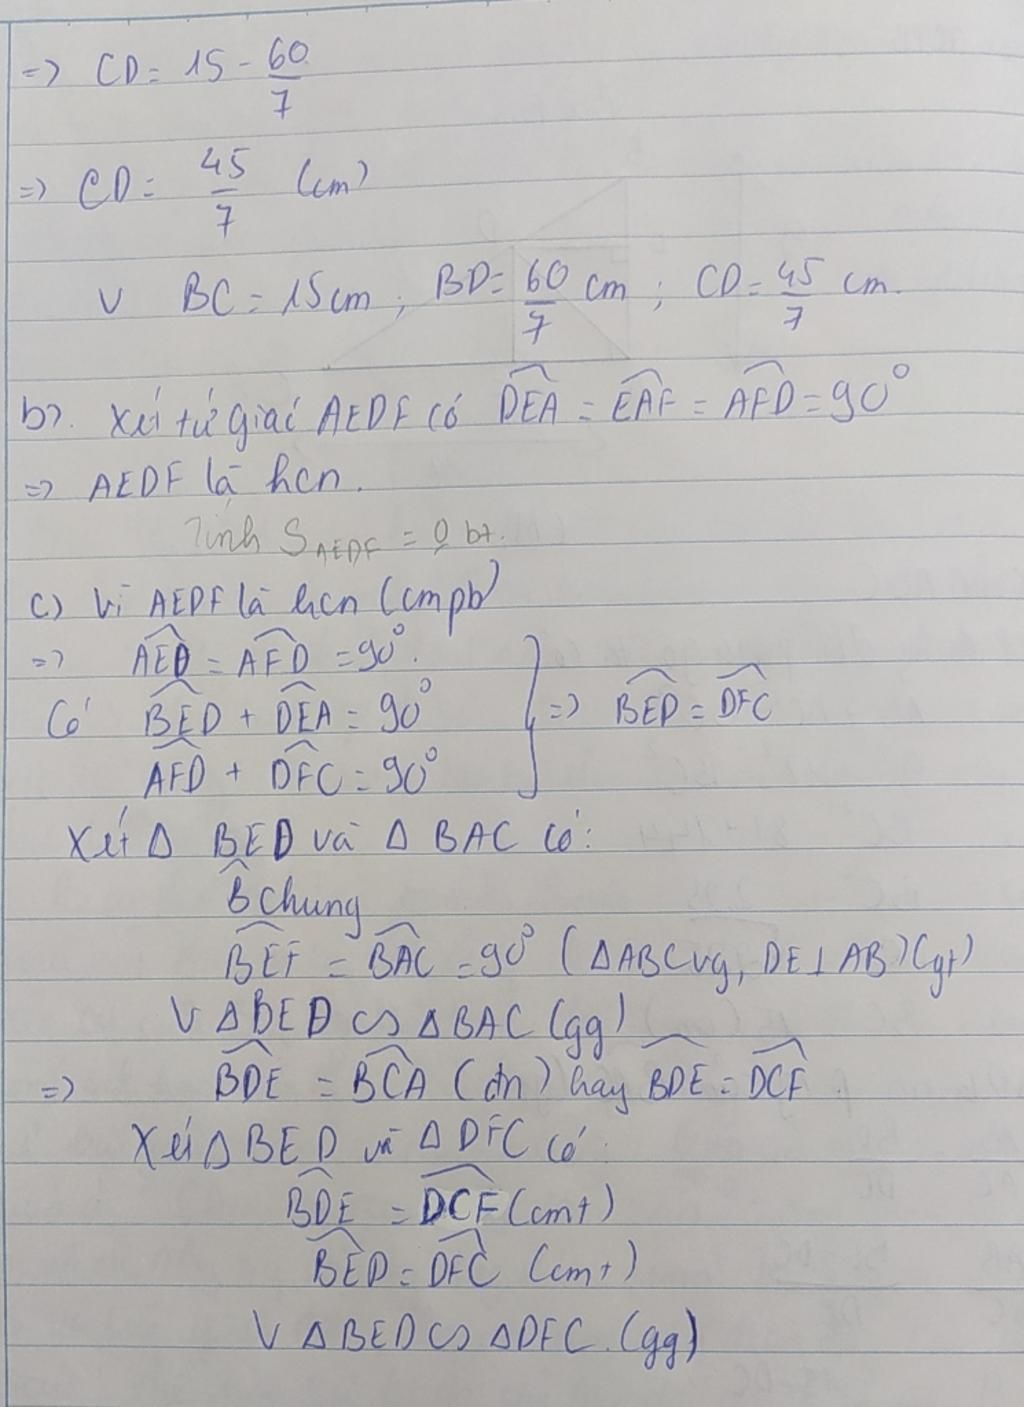 => CD = 15 - 60/7
=> CD = 45/7 (cm)
V BC = 15cm, BD = 60/7 cm ; CD = 45/7 cm.
b). Xét tứ giác AEDF có DEA = EAF = AFD = 90°
=> AEDF là hcn.
Tính S AEDF = ở bt.
c) Vì AEDF là hcn (cmpb)
=> AED = AFD = 90°.
Có BED + DEA = 90°
AFD + DFC = 90°
=> BED = DFC
Xét Δ BED và Δ BAC có:
B chung
BEF = BAC = 90° (ΔABC vg, DE⊥AB)(gt)
V ΔBED ∽ ΔBAC (gg)
=> BDE = BCA (đn) hay BDE = DCF.
Xét Δ BED và Δ DFC có:
BDE = DCF (cmt)
BED = DFC (cmt)
V ΔBED ∽ ΔDFC. (gg)